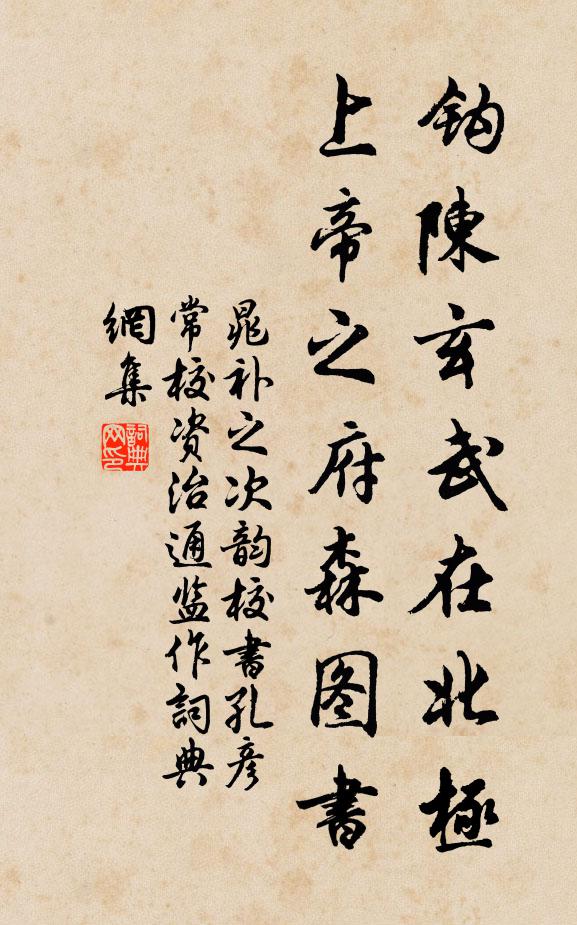 钩陳玄武在北極
上帝之府森图書
晁补之次韵校書孔彦
常校资治通监作詞典
網集
詞典网印